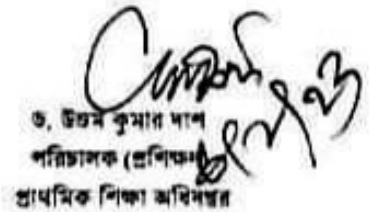 ড. উত্তম কুমার দাশ
পরিচালক (প্রশিক্ষণ)
প্রাথমিক শিক্ষা অধিদপ্তর